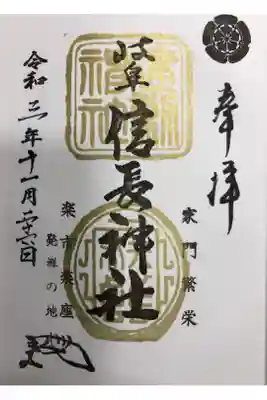 奉拝
家門繁栄
岐阜信長神社
楽市楽座
発祥の地
令和三年十一月二十六日